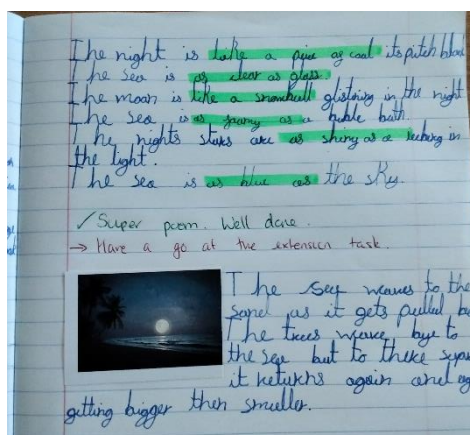 The night is like a piece of coal its pitch black
The sea is as clear as glass.
The moon is like a snowball glistoring in the night
The sea is as foamy as a buble bath.
The nights stars are as shiny as a iceberg in
the light.
The sea is as blue as the sky.
✓ Super poem. Well done.
→ Have a go at the extension task.
The sea weaves to the
sand as it gets pulled
The trees weave bye to
the sea but to there
it returns again and
getting bigger then smaller.